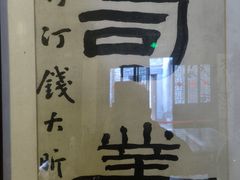 司業
竹汀錢大昕